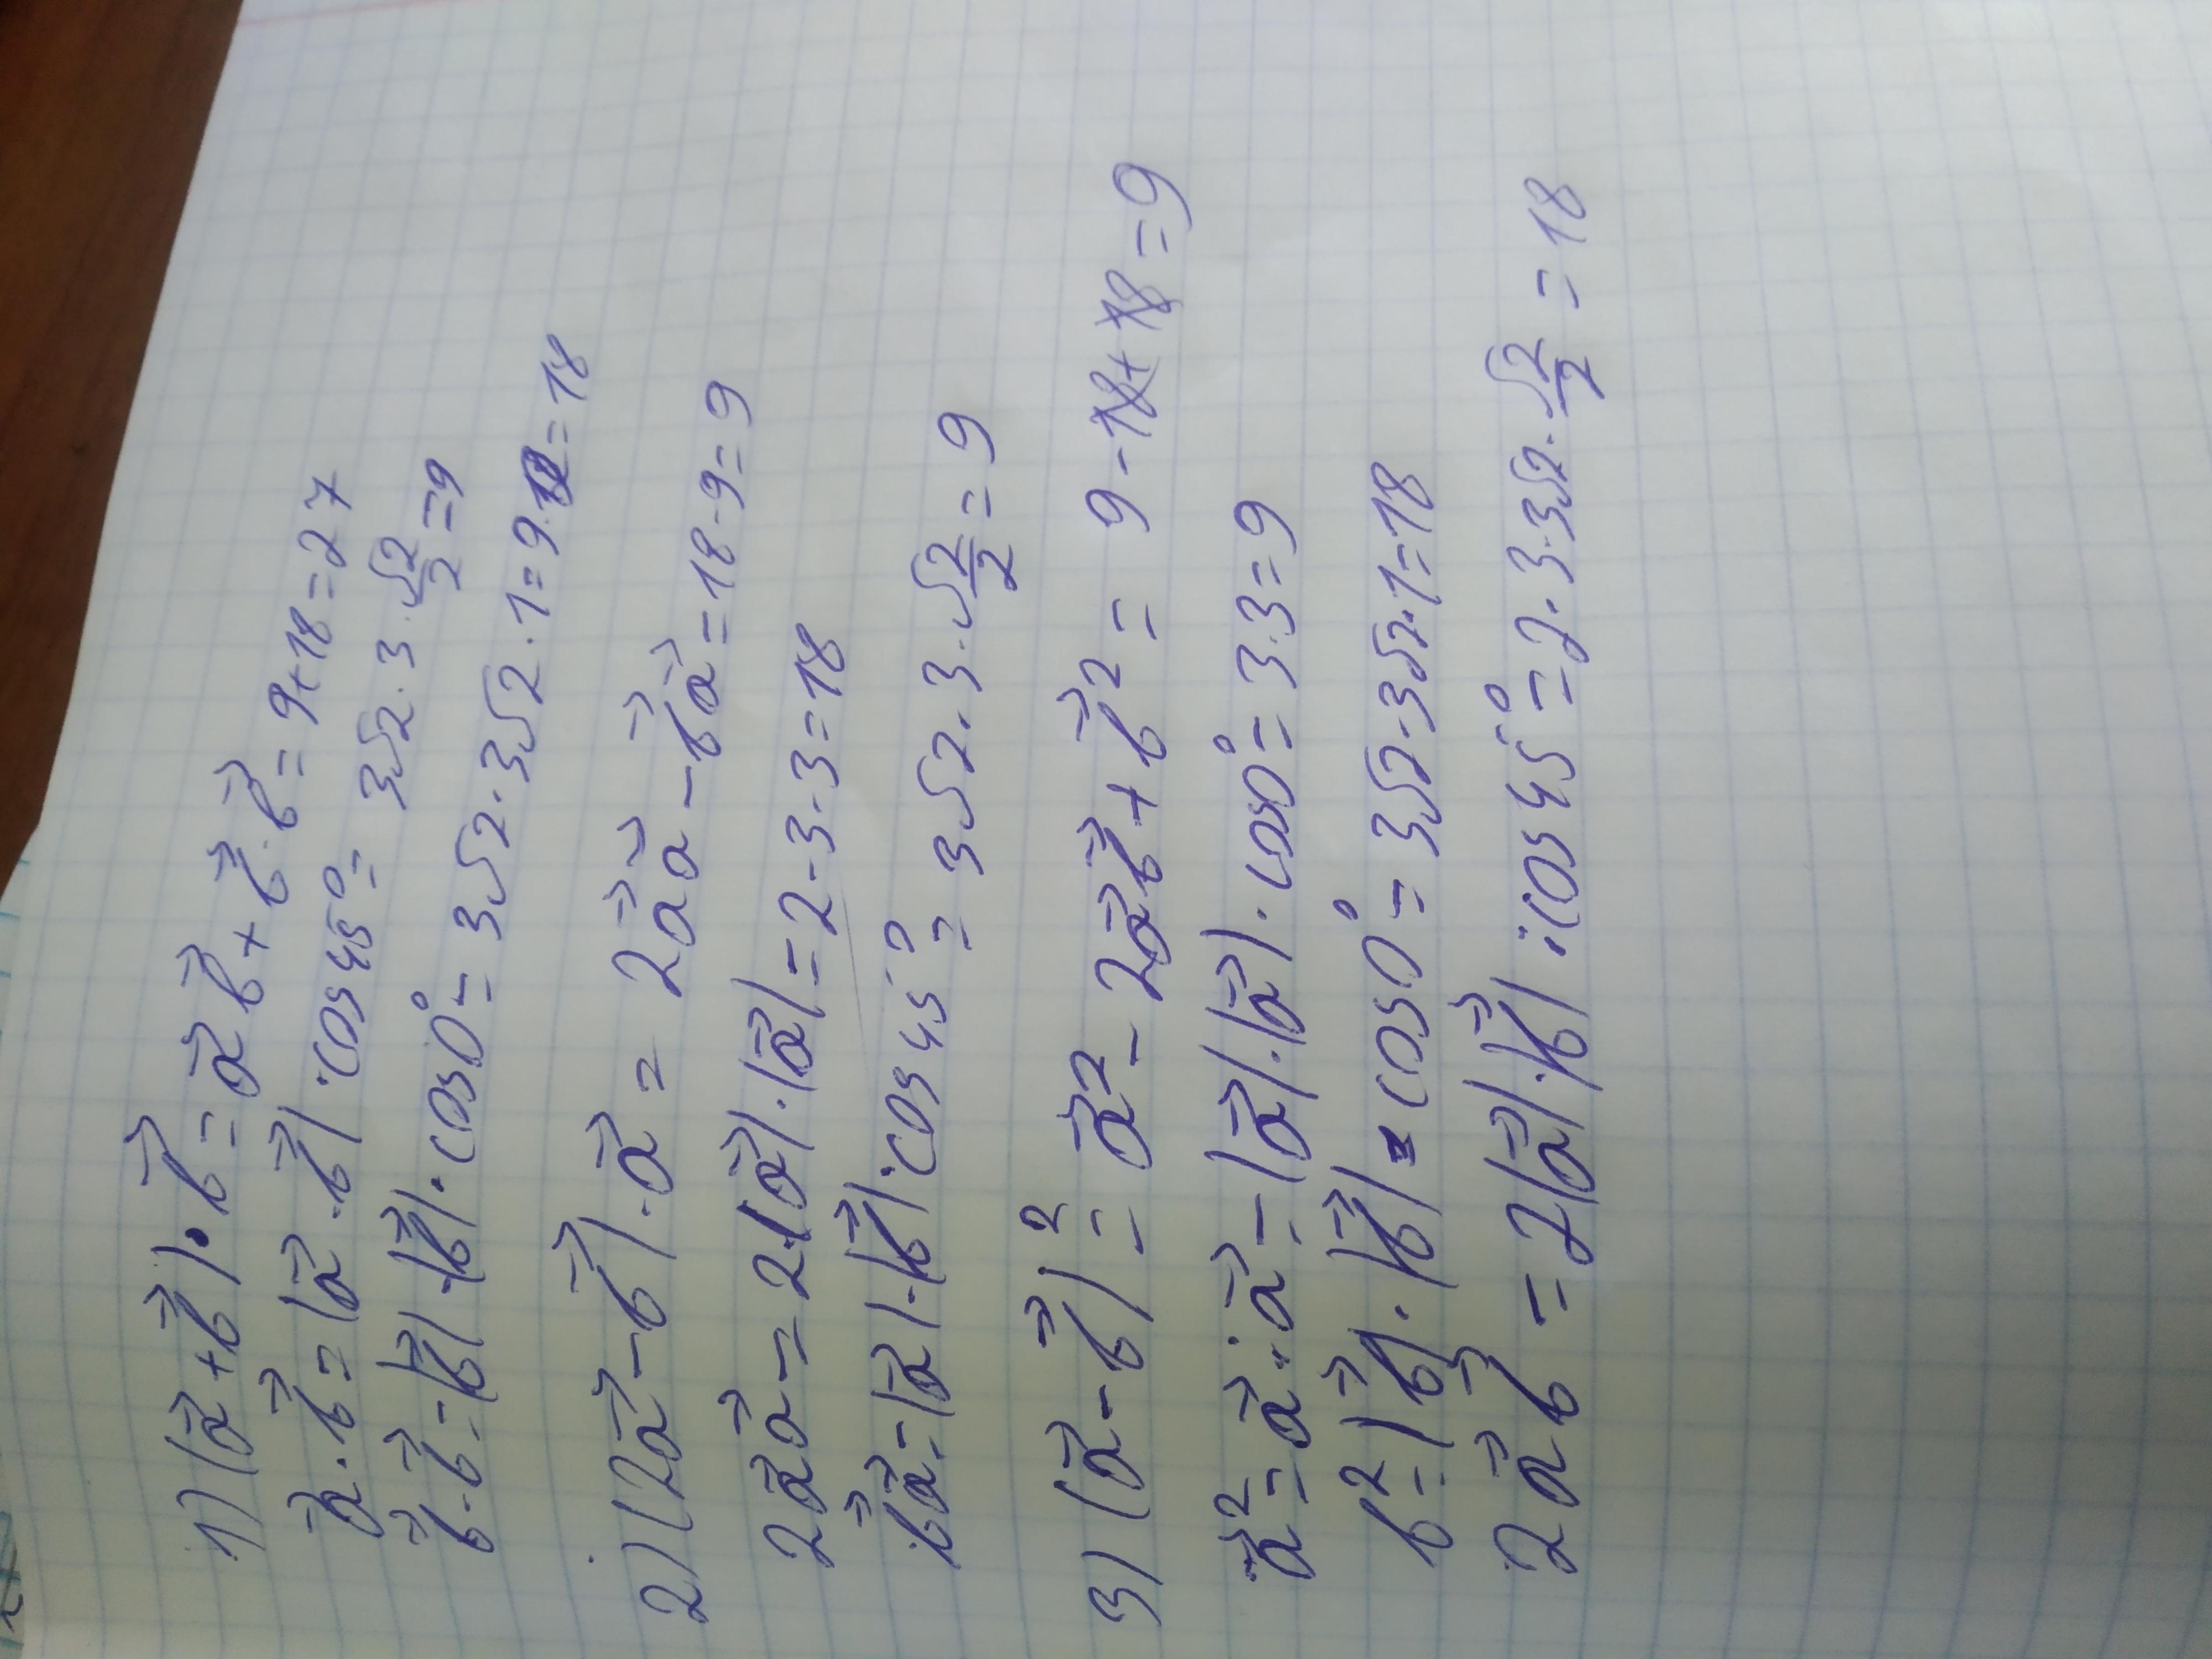 1) (a⃗+b⃗)·b⃗=a⃗b⃗+b⃗·b⃗=9+18=27
a⃗·b⃗=|a⃗·b⃗|·cos45°=3√2·3·√2/2=9
b⃗·b⃗=|b⃗|·|b⃗|·cos0°=3√2·3√2·1=9·2=18
2) (2a⃗-b⃗)·a⃗=2a⃗a⃗-b⃗a⃗=18-9=9
2a⃗a⃗=2·|a⃗|·|a⃗|=2·3·3=18
b⃗a⃗=|a⃗|·|b⃗|·cos45°=3√2·3·√2/2=9
3) (a⃗-b⃗)²=a⃗²-2a⃗b⃗+b⃗²=9-18+18=9
a⃗²=a⃗·a⃗=|a⃗|·|a⃗|·cos0°=3·3=9
b²=|b⃗|·|b⃗|·cos0°=3√2·3√2·1=18
2a⃗b⃗=2|a⃗|·|b⃗|·cos45°=2·3·3√2·√2/2=18